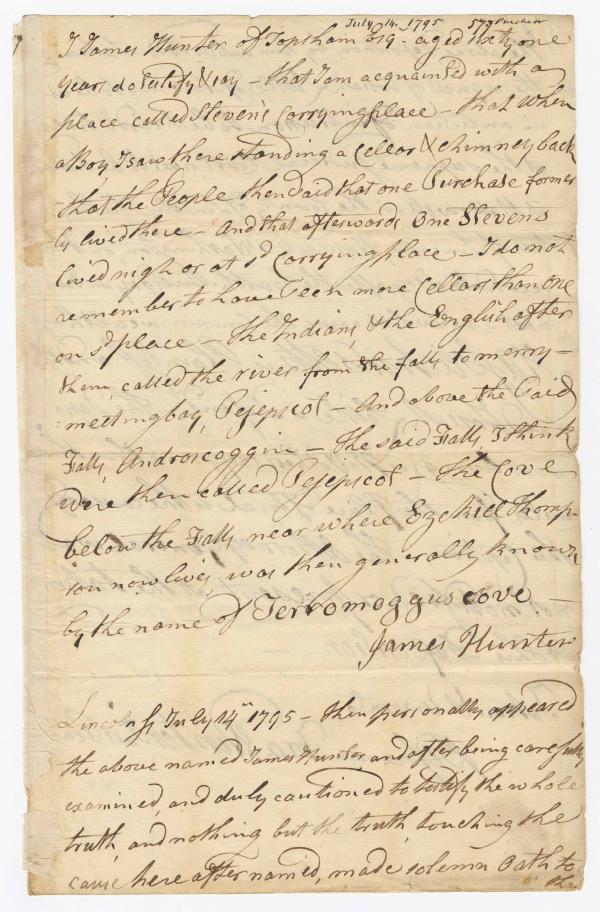 July 14. 1795 579 Purchase
I James Hunter of Topsham Esq - aged sixty one
years do testify & say - that I am acquainted with a
place called Steven's Carryingplace - that when
a Boy I saw there standing a Cellar & chimney back
that the People then said that one Purchase former
ly lived there - And that afterwards One Stevens
lived nigh or at sd Carryingplace - I do not
remember to have seen more Cellars than one
on sd place - the Indians, & the English after
them, called the river from the falls to merry-
meeting bay, Pejepscot - And above the said
Falls, Androscoggin - the said Falls, I think
were then called Pejepscot - the Cove
below the Falls near where Ezekiel Thomp-
son now lives was then generally known
by the name of Terromoggus cove -
James Hunter
Lincoln ss July 14th 1795 - then personally appeared
the above named James Hunter, and after being carefully
examined, and duly cautioned to testify the whole
truth, and nothing but the truth, touching the
cause here after named, made solemn Oath to
the